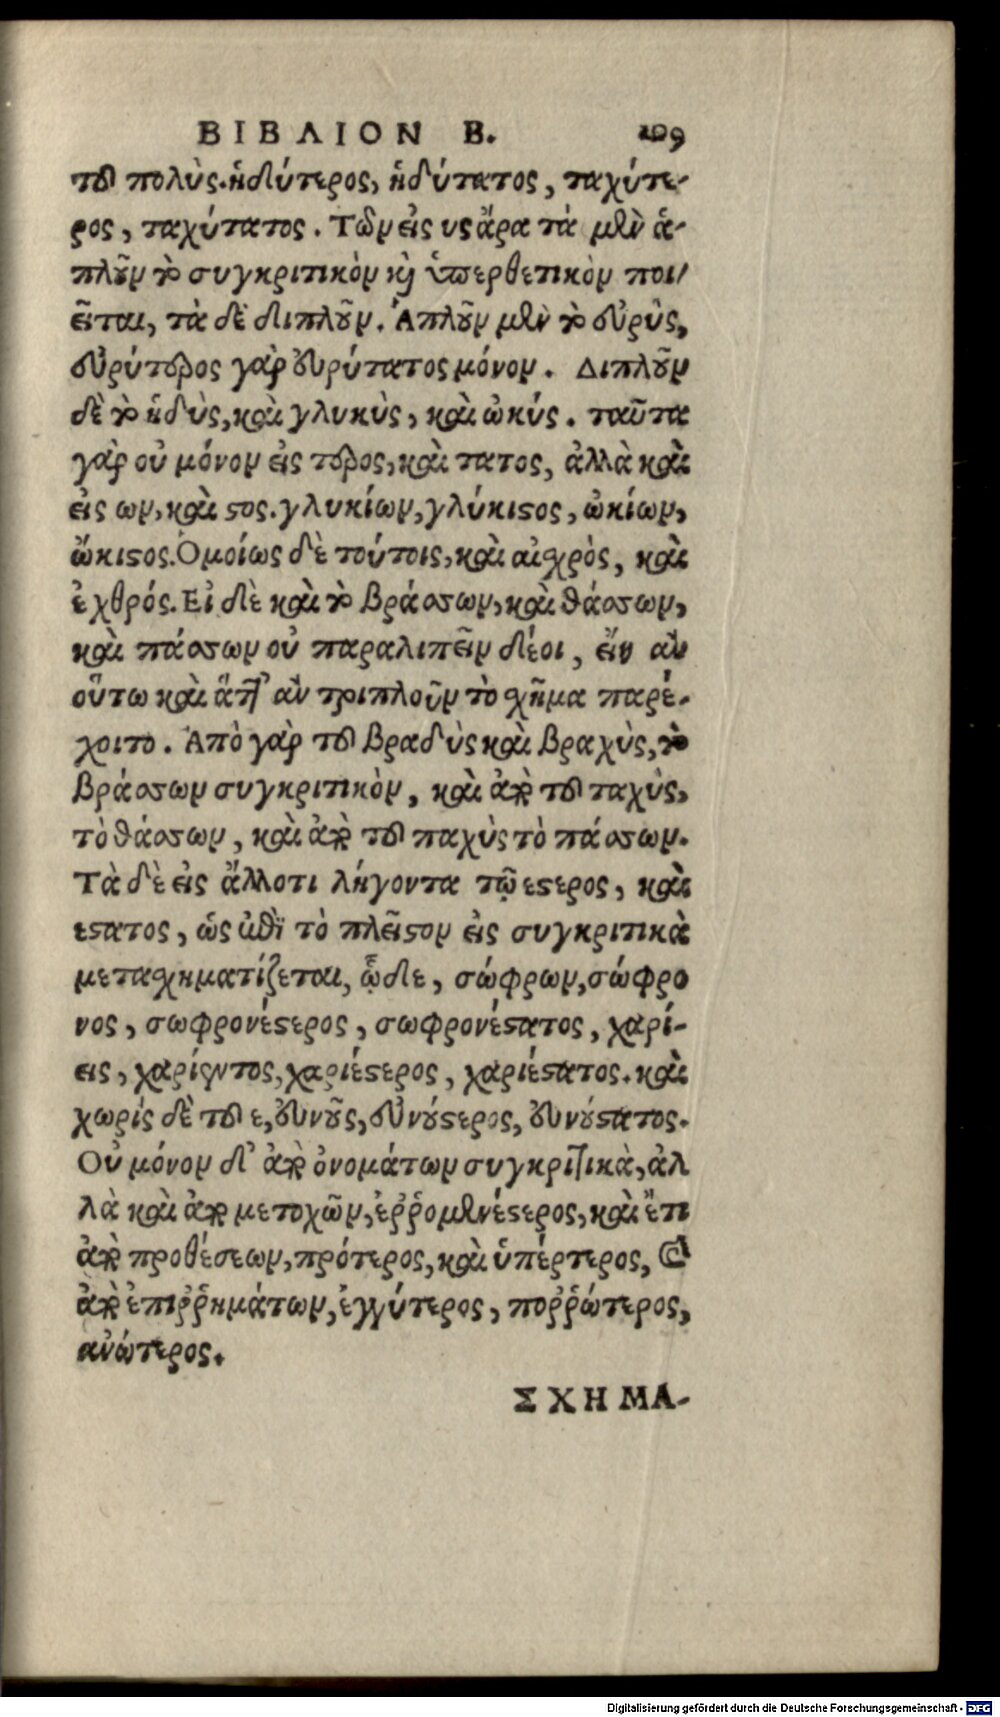 ΒΙΒΛΙΟΝ Β. 109
τοῦ πολὺς. ἡδύτερος, ἡδύτατος, ταχύτε-
ρος, ταχύτατος. Τῶν εἰς υς ἄρα τὰ μὲν ἁ-
πλοῦν τὸ συγκριτικὸν καὶ ὑπερθετικὸν ποι/
εῖται, τὰ δὲ διπλοῦν. Ἁπλοῦν μὲν τὸ εὐρὺς,
εὐρύτερος γὰρ εὐρύτατος μόνον. Διπλοῦν
δὲ τὸ ἡδὺς, καὶ γλυκὺς, καὶ ὠκύς. ταῦτα
γὰρ οὐ μόνον εἰς τερος, καὶ τατος, ἀλλὰ καὶ
εἰς ων, καὶ στος. γλυκίων, γλύκιστος, ὠκίων,
ὤκιστος. Ὁμοίως δὲ τούτοις, καὶ αἰσχρὸς, καὶ
ἐχθρός. Εἰ δὲ καὶ τὸ βράσσων, καὶ θάσσων,
καὶ πάσσων οὐ παραλιπεῖν δέοι, εἴη ἂν
οὕτω καὶ ἅττ' ἂν τριπλοῦν τὸ σχῆμα παρέ-
χοιτο. Ἀπὸ γὰρ τοῦ βραδὺς καὶ βραχὺς, τὸ
βράσσων συγκριτικὸν, καὶ ἀπὸ τοῦ ταχὺς,
τὸ θάσσων, καὶ ἀπὸ τοῦ παχὺς τὸ πάσσων.
Τὰ δὲ εἰς ἄλλοτι λήγοντα τῷ εστερος, καὶ
εστατος, ὡς ἐπὶ τὸ πλεῖστον εἰς συγκριτικὰ
μετασχηματίζεται, ᾧδε, σώφρων, σώφρο
νος, σωφρονέστερος, σωφρονέστατος, χαρί-
εις, χαρίεντος, χαριέστερος, χαριέστατος. καὶ
χωρίς δὲ τοῦ ε, εὐνοῦς, εὐνούστερος, εὐνούστατος.
Οὐ μόνον δ' ἀπὸ ὀνομάτων συγκριτικὰ, ἀλ
λὰ καὶ ἀπὸ μετοχῶν, ἐῤῥομενέστερος, καὶ ἔτι
ἀπὸ προθέσεων, πρότερος, καὶ ὑπέρτερος, καὶ
ἀπὸ ἐπιῤῥημάτων, ἐγγύτερος, ποῤῥώτερος,
ανώτερος.
ΣΧΗΜΑ-
Digitalisierung gefördert durch die Deutsche Forschungsgemeinschaft - DFG